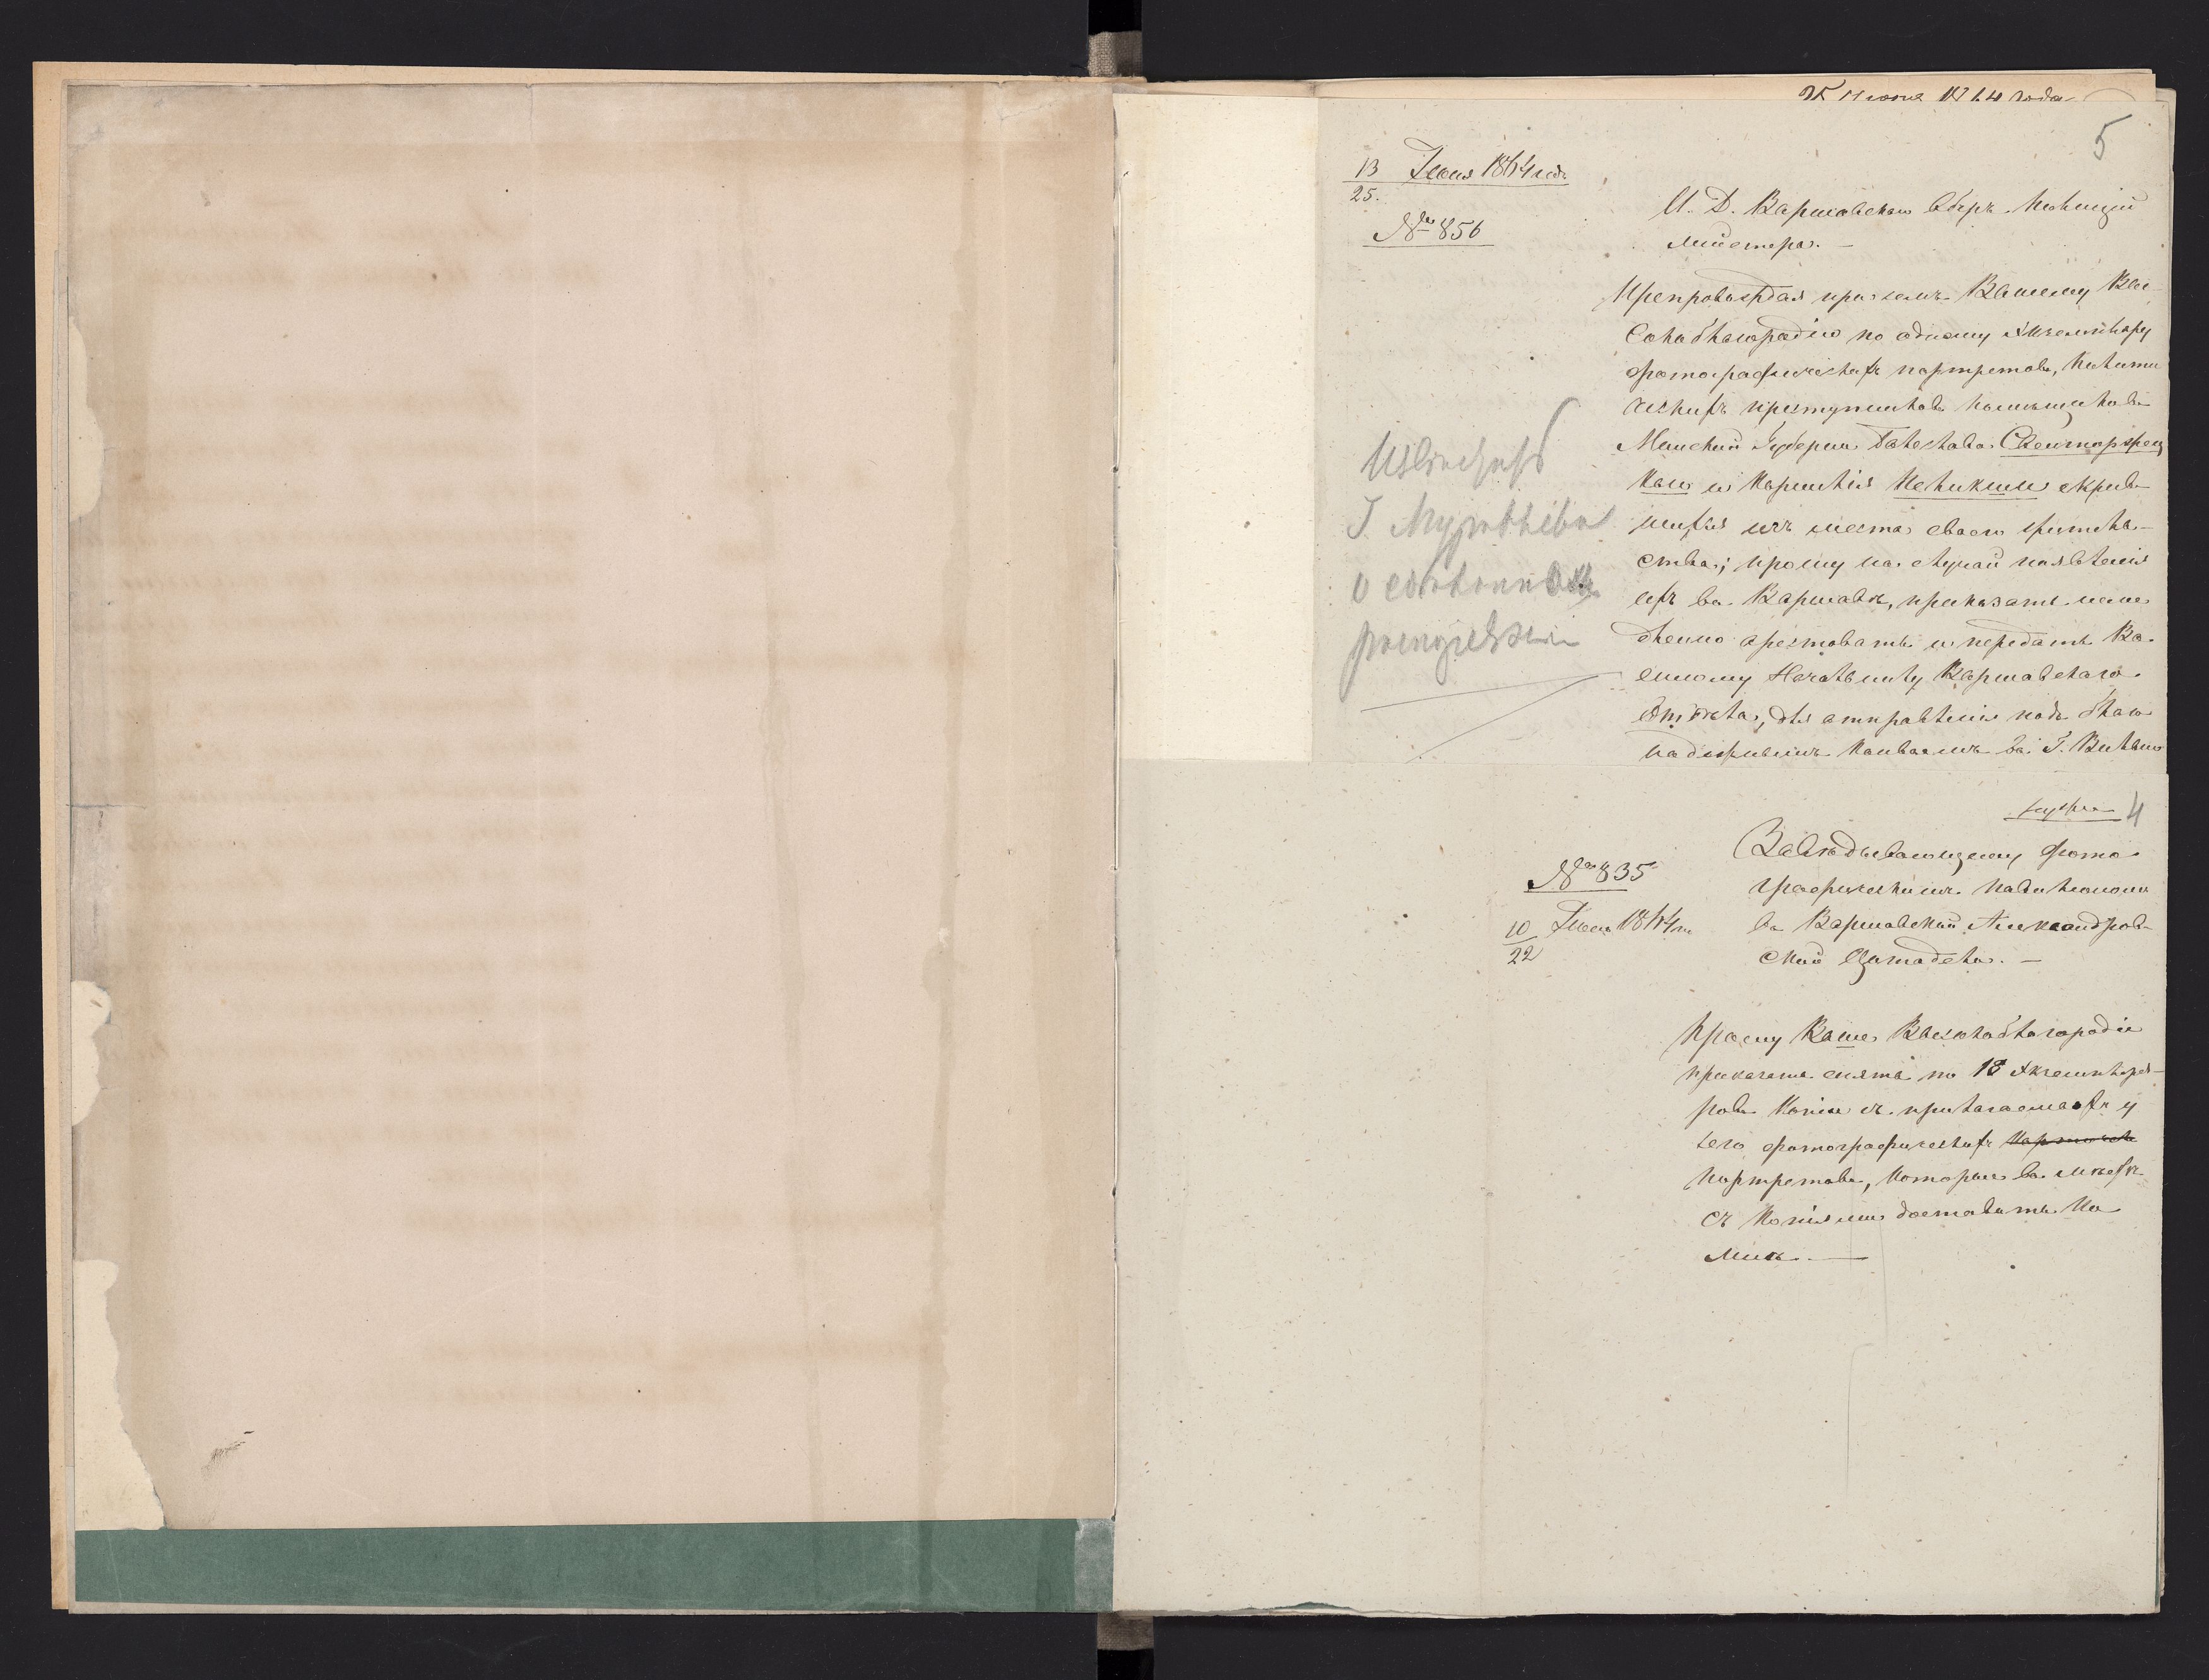 25 Июня 1864 года
5
13/25. Июня 1864 года
№ 856
И. Д. Варшавскаго Оберъ-Полицій
мейстера.—
Препровождая при семъ Вашему Вы-
сокоблагородію по одному экземпляру
фотографическихъ портретовъ, полити
ческихъ преступниковъ помѣщиковъ
Минской Губерніи Болеслава Свенторжец
каго и Корнилія Пеликши скрыв-
шихся изъ мѣста своего жительс-
ства; прошу на случай появленія
ихъ въ Варшавѣ, приказать неме
дленно арестовать и передать Во-
енному Начальнику Варшавскаго
Отдѣла, для отправленія подъ благо
надежнымъ конвоемъ въ Г. Вильно
Муравьева
4
№ 835
10/22 Июня 1864 г.
Завѣдывающему фото-
графическимъ павильономъ
въ Варшавской Александров-
ской Цитадели.—
Прошу Ваше Высокоблагородіе
приказать снять по 18 экземпля-
ровъ копіи съ прилагаемыхъ у
сего фотографическихъ карточекъ
портретовъ, которые вмѣстѣ
съ копіями доставить ко
мнѣ.—